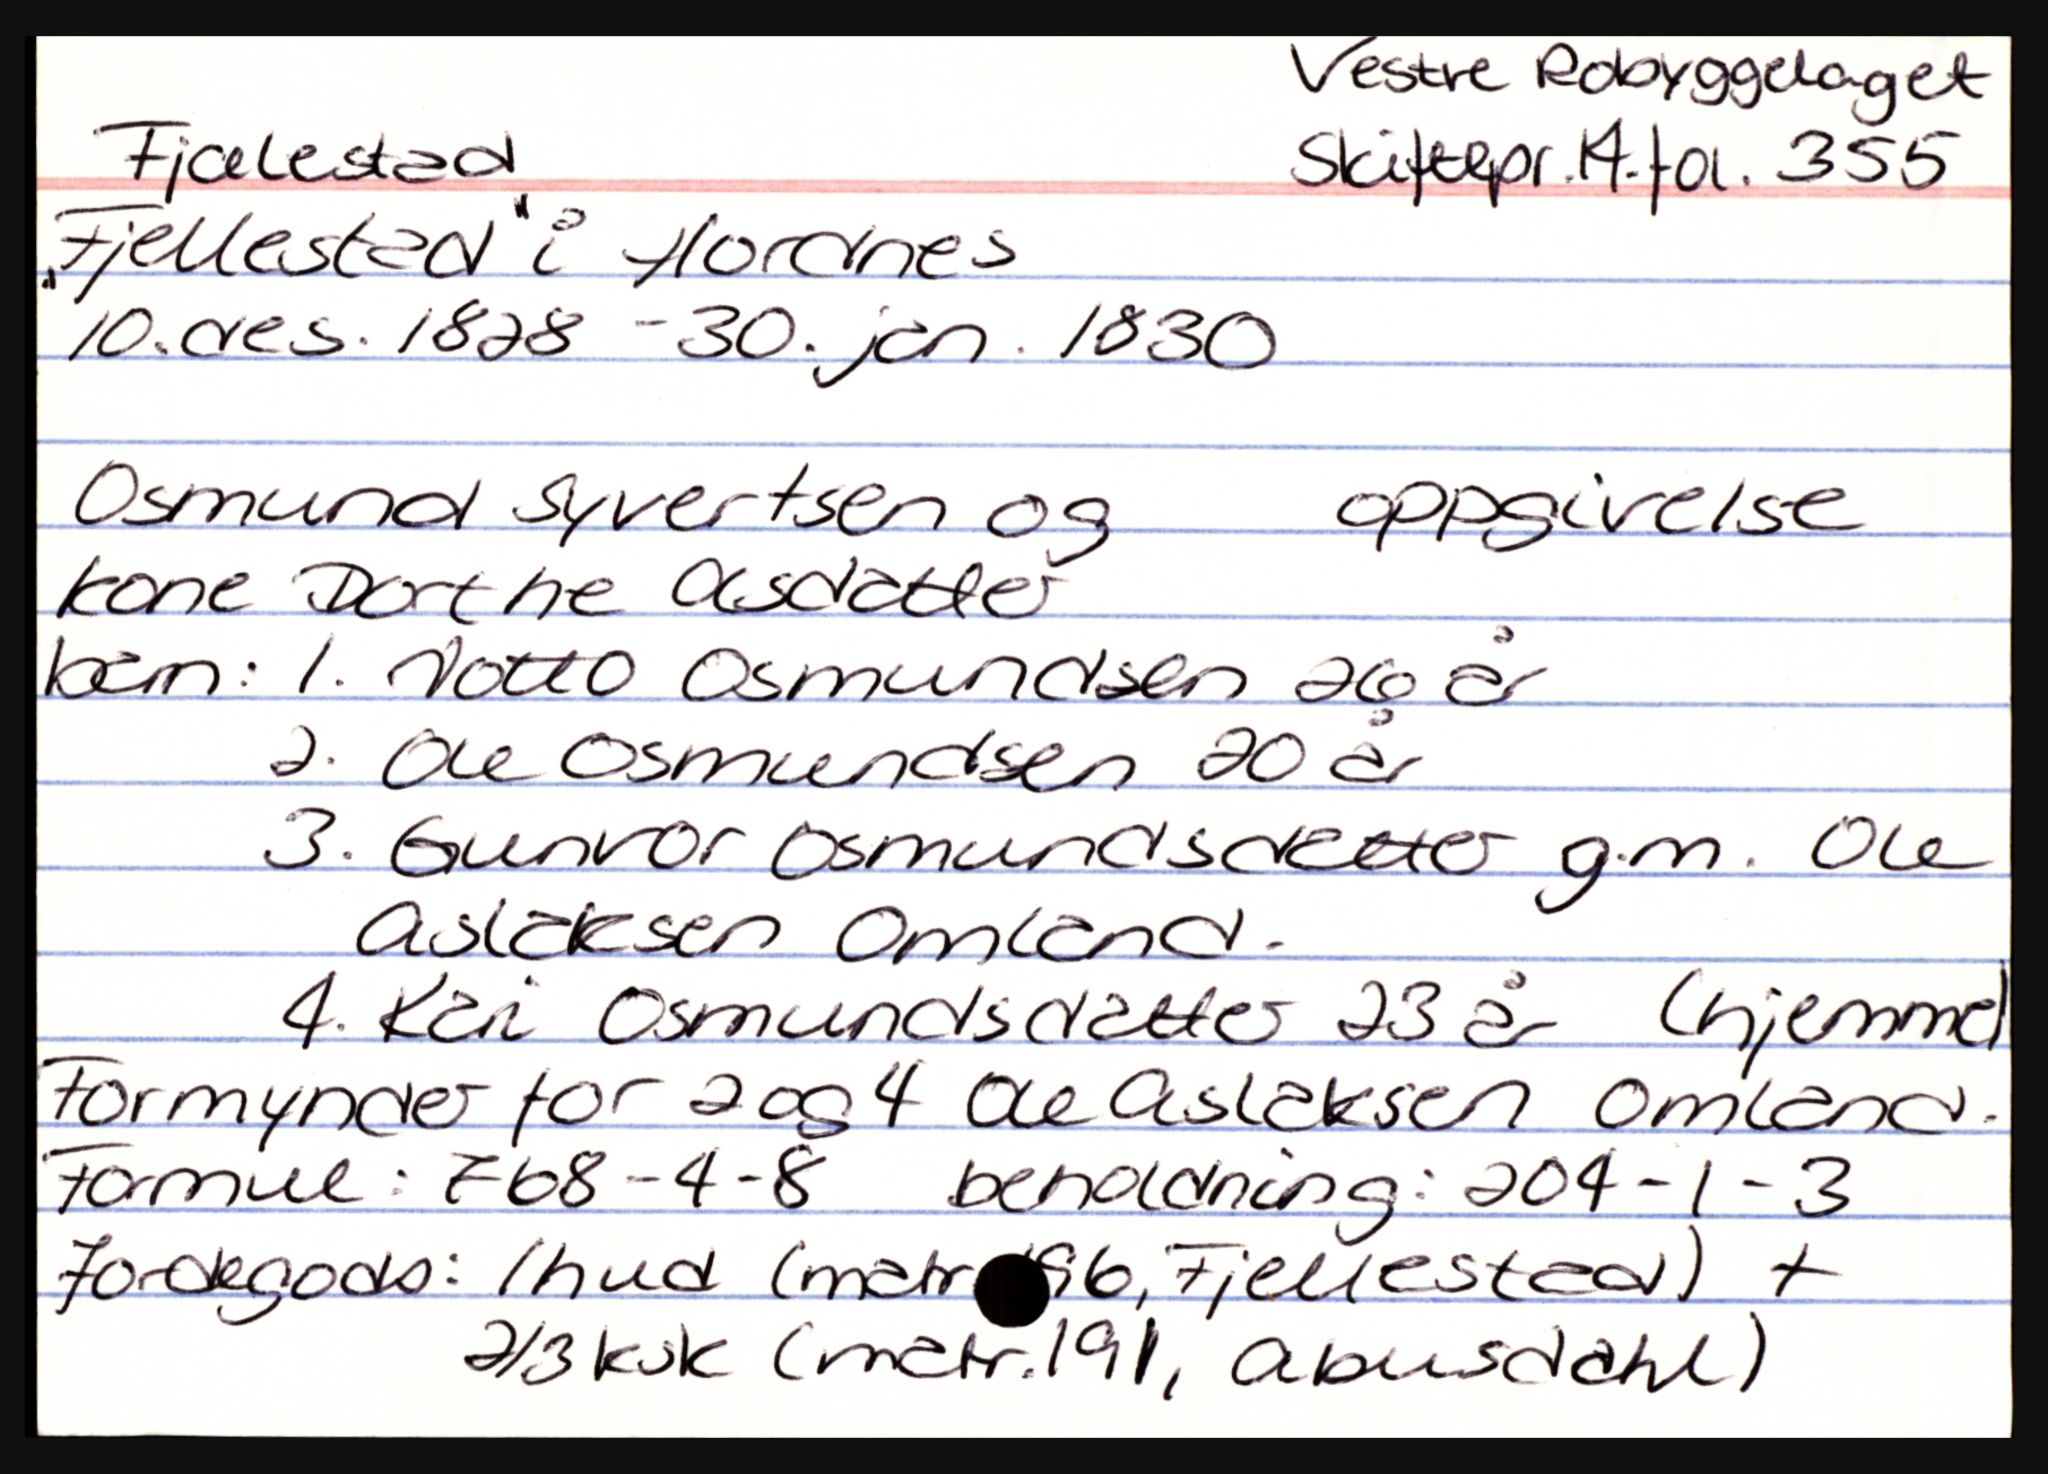 Vestre Robyggelaget
Fjælestad
Skiftepr. 14. fol. 355
"Fjellestad" i Hordnes
10. des. 1828 - 30. jan. 1830
Osmund Syvertsen og oppgivelse
kone Dorthe Asdatter
barn: 1. Notto Osmundsen 26 år
2. Ole Osmundsen 20 år
3. Gunvor Osmundsdatter g.m. Ole
Aslaksen Omland.
4. Kari Osmundsdatter 23 år (hjemme)
Formynder for 2 og 4 Ole Aslaksen Omland.
Formue: 768-4-8 beholdning: 204-1-3
Jordegods: 1 hud (matr. 196, Fjellestad) +
2/3 ksk (matr. 191, Abusdahl)